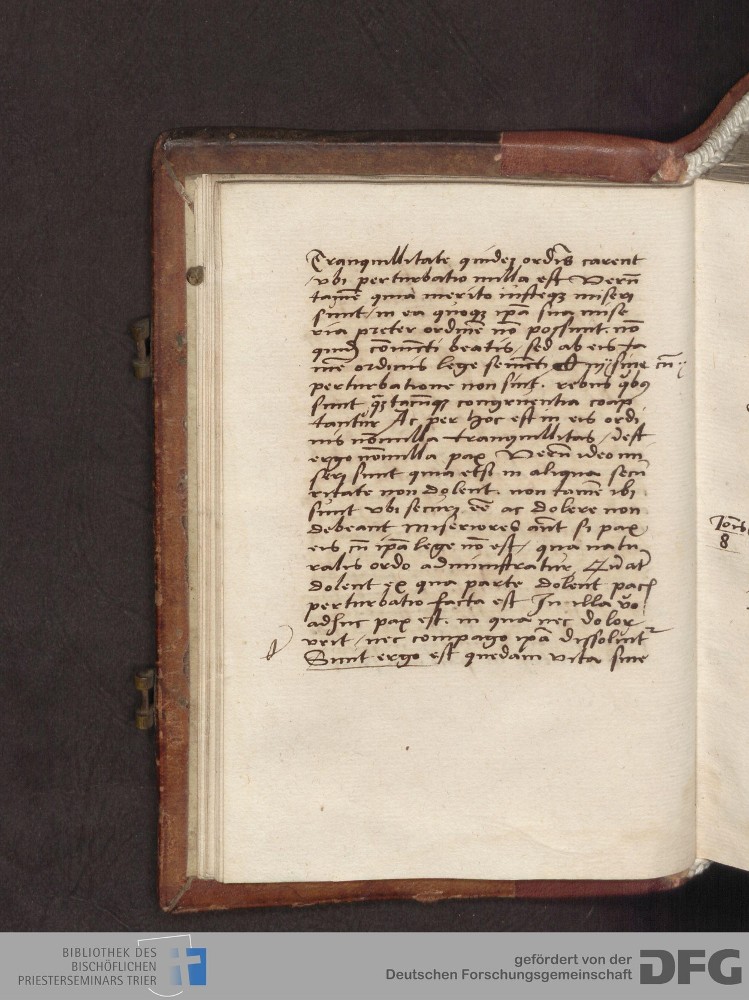 Tranquillitate quidez ordīs carent
vbi perturbatio nulla est Verū
tamē quia merito iusteqz miseri
sunt / in ea quoqz ipā sua mise
ria preter ordinē nō possunt. nō
quidē cōiuncti beatis / sed ab eis ta
mē ordinis lege seiuncti Qui sine cū
perturbatione non sunt. rebus qbus
sunt qātacūqz congruentia coap
tantur Ac per hoc est in eis ordi
nis nōnulla tranquillitas / Jest
ergo nōnulla pax Verū ideo mi
seri sunt quia etsi in aliqua secu
ritate non dolent. non tamē ibi
sunt vbi securi eē ac dolere non
debeant Miseriores aūt si pax
eis cū ipā lege nō est / qua natu
ralis ordo administratur Qū āt
dolent ex qua parte dolent pacs
perturbatio facta est In illa vo
adhuc pax est. in qua nec dolor
vrit / nec compago ipā dissoluit
Sicut ergo est quedam vita sine
Joīs
8
BIBLIOTHEK DES
BISCHÖFLICHEN
PRIESTERSEMINARS TRIER
gefördert von der
Deutschen Forschungsgemeinschaft
DFG